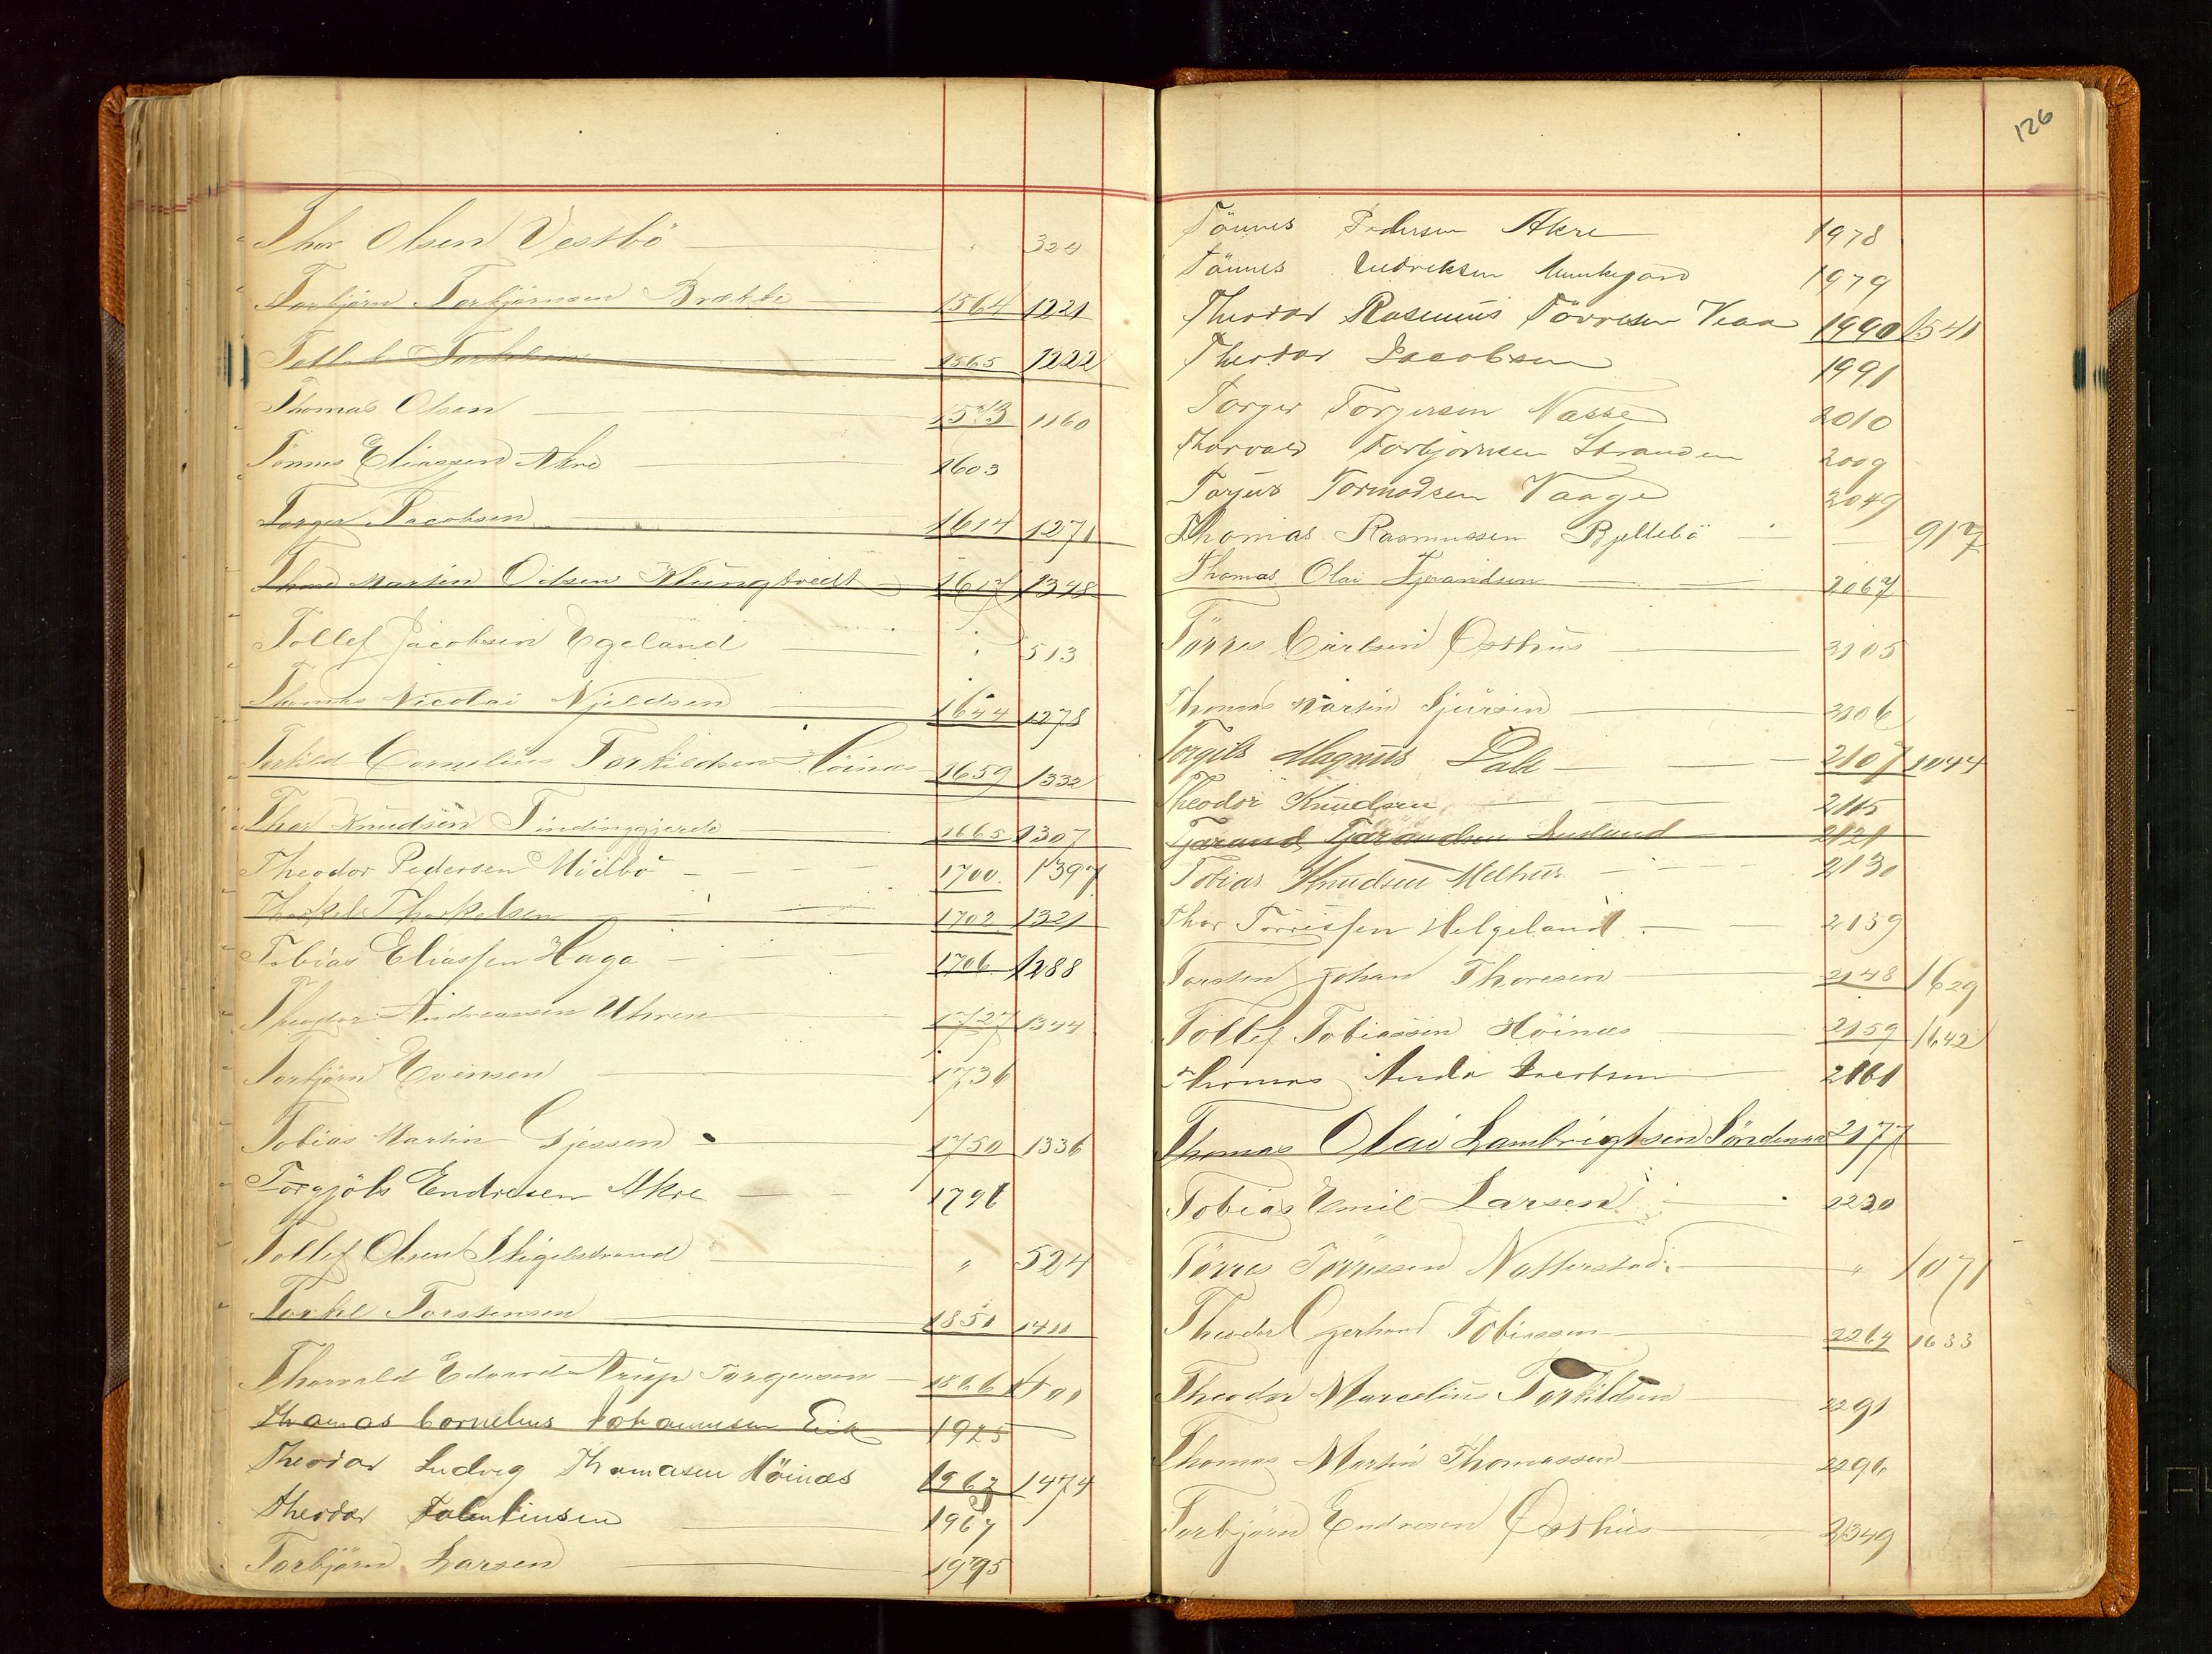 Thor Olsen Vestbö " 324
Torbjörn Torbjörnsen Brække 1564 1221
Tollak 1565 1222
Thomas Olsen 1573 1160
Tönnes Eliassen Akre 1603
Torger Jacobsen 1614 1271
Martin Olsen Klungtvedt 1617 1348
Tollef Jacobsen Egeland " 513
Thomas Nicolai Njeldsen 1644 1278
Torkild Cornelius Torkildsen Höines 1659 1332
Thor Knudsen Tindinggjerde 1665 1307
Theodor Pedersen Midbö 1700 1397
Thorkel Thorkelsen 1702 1321
Tobias Eliassen Haga 1706 1288
Theodor Andreassen Uhren 1727 1344
Torbjörn Evensen 1736
Tobias Martin Gjessen 1750 1336
Torgjöls Endresen Akre 1791
Tollef Olsen Stigelstrand " 524
Torkel Torstensen 1851 1411
Thorvald Edvard Torgersen 1866
Thomas Cornelius Johannesen Eik 1925
Theodor Ludvig Thomasen Höinæs 1962 1474
Theodor 1967
Torbjörn Larsen 1995
126
Tönnes Pedersen Akre 1978
Tönnes 1979
Theodor Rasmus Törresen Veaa 1990 1541
Theodor Jacobsen 1991
Torger Torgersen Næsse 2010
Thorvald Torbjörnsen Stranden 2009
Torjus Tormodsen Vaage 2049
Thomas Rasmussen " 917
Thomas Olai Tjerandsen 2067
Törres Carlsen Østhus 3105
Thomas Martin Sjursen 3106
Torgils Magnus Dale 2107 1044
Theodor Knudsen 2115
Tjerand Tjerandsen 2121
Tobias Knudsen Melhus 2130
Thor Törrissen Helgeland 2139
Torsten Johan Thoresen 2148 1629
Tollef Tobiassen Höinæs 2159 1642
Thomas Jacobsen 2161
Thomas Olai Lambrigtsen 2177
Tobias Emil Larsen 2230
Törres Törressen Natterstad " 1071
Theodor Gerhard Tobiassen 2264 1633
Theodor Marcelius Torkildsen 2291
Thomas Martin Thomassen 2296
Torbjörn Endresen Østhus 2349